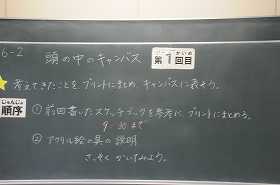 6-2 頭の中のキャンバス 第1回目
かいめ
★考えてきたことをプリントにまとめ、キャンバスに表そう。
じゅんじょ
順序
①前回書いたスケッチブックを参考に、プリントにまとめる。
9:30まで
②アクリル絵の具の説明
さっそくかいてみよう。